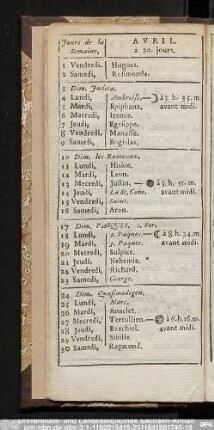 Jours de la Semaine.
AVRIL à 30. jours.
1 Vendredi, Hugues.
2 Samedi,
3 Dim. Judica.
4 Lundi, Ambroise. à 5 h. 35. m.
5 Mardi, Epiphane, avant midi.
6 Mecredi, Irenée.
7 Jeudi, Egesippe.
8 Vendredi, Manassé.
9 Samedi, Bogislas.
10 Dim. les Rameaux.
11 Lundi, Hiskie.
12 Mardi, Leon.
13 Mecredi, Justin. à 3. h. 55. m.
14 Jeudi, La St. Cene. avant midi.
15 Vendredi,
16 Samedi, Aron.
17 Dim. PAQUES, 1. Fer.
18 Lundi, 2. Paques. à 8 h. 24. m.
19 Mardi, 3. Paques. avant midi.
20 Mecredi, Sulpice.
21 Jeudi, Nehemie.
22 Vendredi, Richard.
23 Samedi, George.
24 Dim. Quasimodogen.
25 Lundi, Marc.
26 Mardi, Anaclet.
27 Mecredi, Tertullien. à 6. h. 16. m.
28 Jeudi, Ezechiel. avant midi.
29 Vendredi, Sibille.
30 Samedi, Raymond.
Universitäts- und Landesbibliothek Sachsen-Anhalt